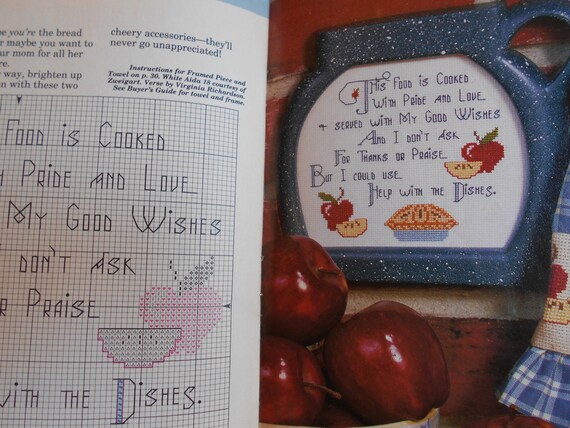 pe you're the bread
r maybe you want to
ur mom for all her
re.
way, brighten up
en with these two
cheery accessories—they'll
never go unappreciated!
Instructions for Framed Piece and
Towel on p. 30. White Aida 18 courtesy of
Zweigart. Verse by Virginia Richardson.
See Buyer's Guide for towel and frame.
Food is Cooked
Pride and Love
My Good Wishes
don't ask
r Praise
with the Dishes.
This Food is Cooked
With Pride and Love
+ served with My Good Wishes
And I don't ask
For Thanks or Praise
But I could use
Help with the Dishes.